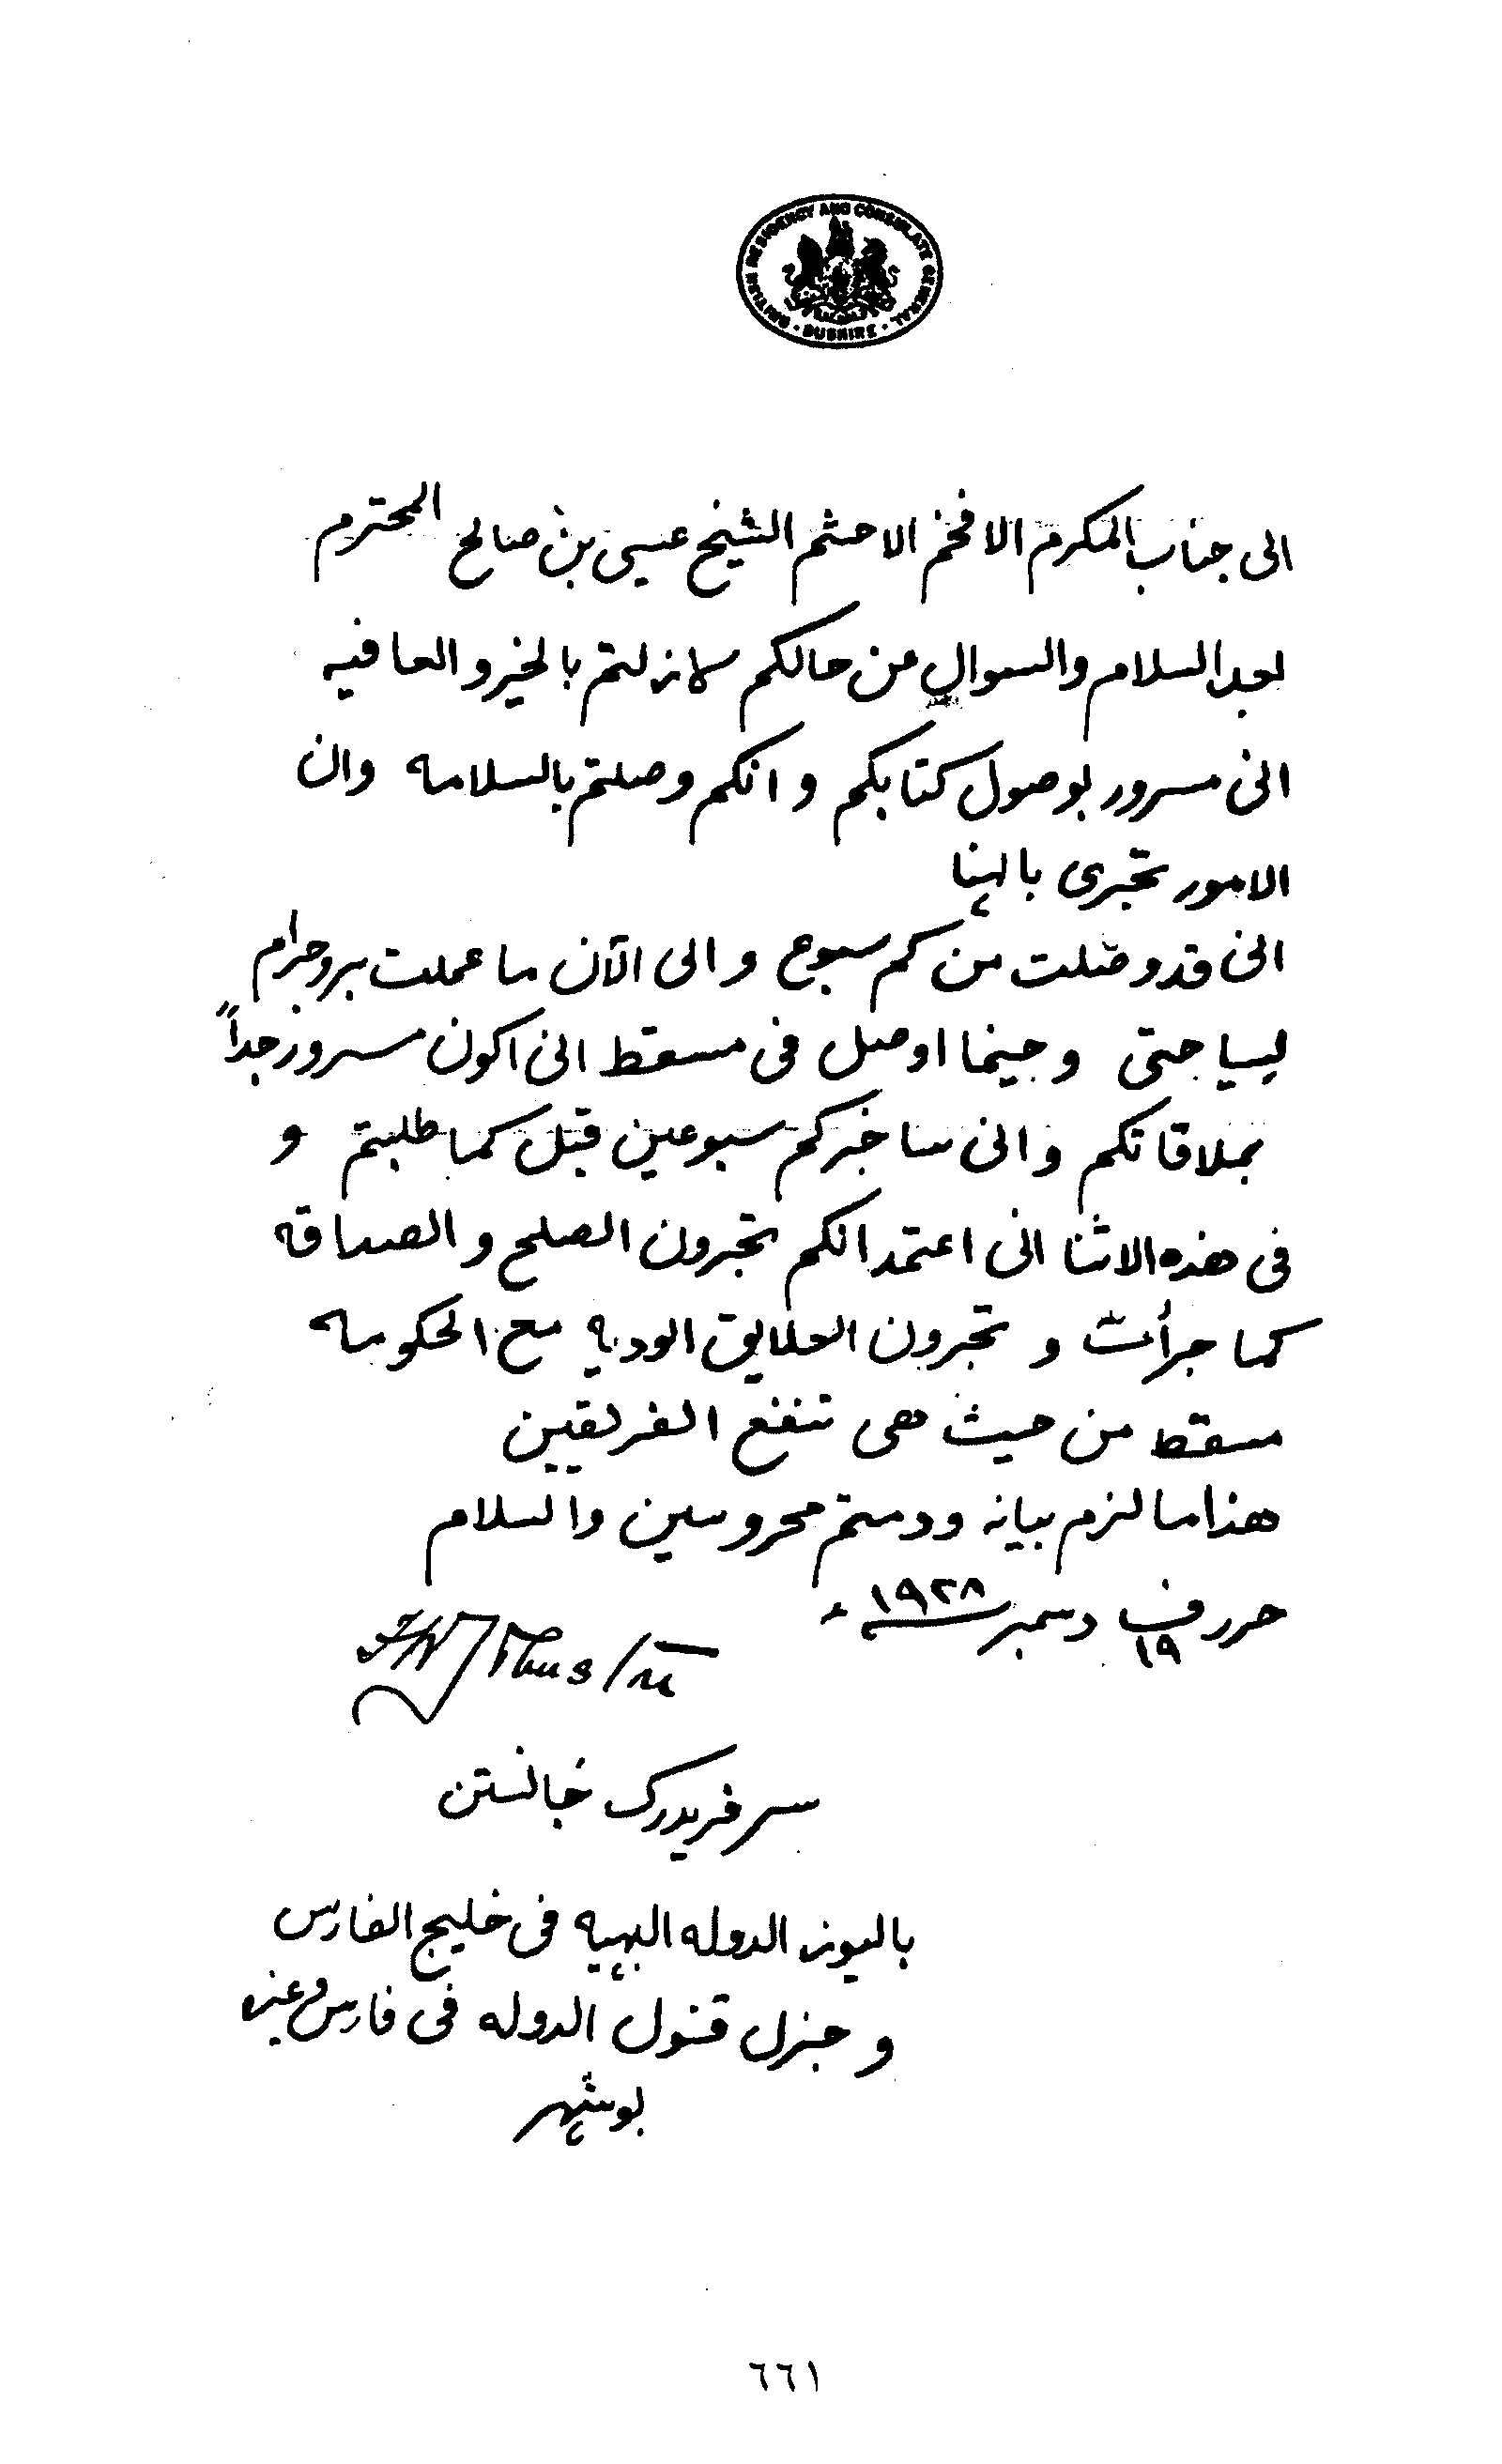 BRITISH RESIDENCY AND CONSULATE GENERAL · BUSHIRE ·
الى جناب المكرم الافخم الاحشم الشيخ عيسى بن صالح المحترم
بعد السلام والسوال من حالكم لازلتم بالخير و العافيه
انى مسرور بوصول كتابكم و انكم وصلتم بالسلامه وان
الامور تجرى بالهنا
انى قد وصلت من كم سبوع و الى الآن ما عملت بروجرام
لسياحتى وحينما اوصل فى مسقط انى اكون مسرور جداً
بملاقاتكم وانى ساخبركم سبوعين قبل كما طلبتم و
فى هذه الاثنا انى اعتمد انكم تجرون الصلح و الصداقه
كما جرأت و تجرون العلايق الوديه مع الحكومه
مسقط من حيث هى تنفع الفريقين
هذا ما لزم بيانه ودمتم محروسين والسلام
حرر فى ١٩ دسمبر ١٩٢٨ء
سر فريدرك جانستن
باليوز الدوله البهيه فى خليج الفارس
و جنرل قنول الدوله فى فارس وغيره
بوشهر
٦٦١